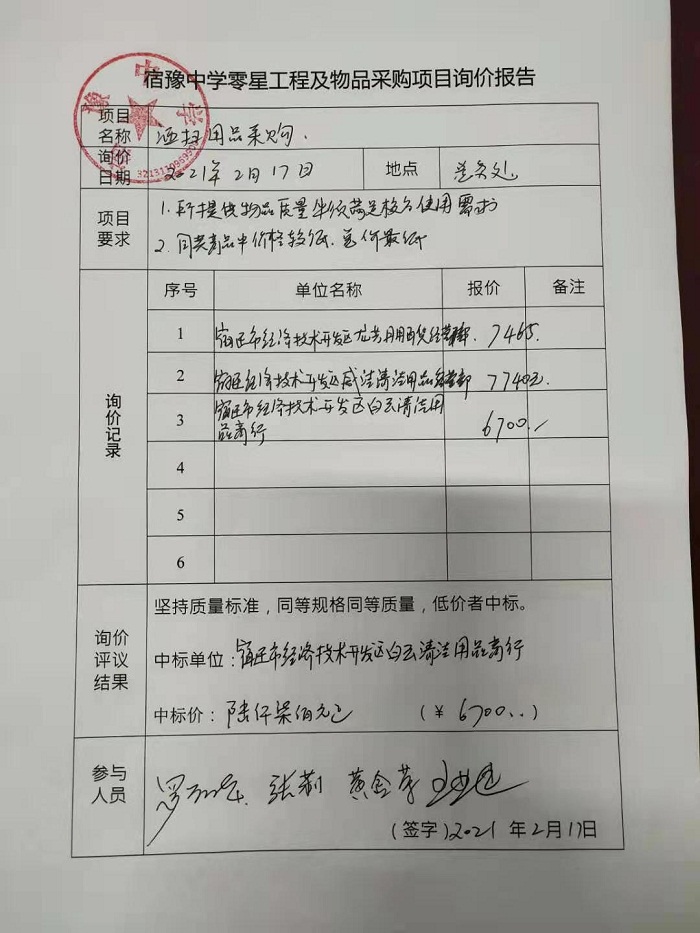 宿豫中学零星工程及物品采购项目询价报告
项目名称 洒扫用品采购.
询价日期 2021年2月17日 地点 总务处
项目要求 1. 所提供物品质量必须满足校方使用需求
2. 同类商品中价格较低、总价最低
询价记录
序号 单位名称 报价 备注
1 宿迁市经济技术开发区 日用 经营部. 7465.
2 宿迁经济技术开发区 洁清洁用品经营部 7740元
3 宿迁市经济技术开发区白云清洁用
品商行 6700.-
4
5
6
询价评议结果
坚持质量标准，同等规格同等质量，低价者中标。
中标单位：宿迁市经济技术开发区白云清洁用品商行
中标价：陆仟柒佰元正 （￥6700..）
参与人员
张莉 黄金芳
（签字）2021年2月17日